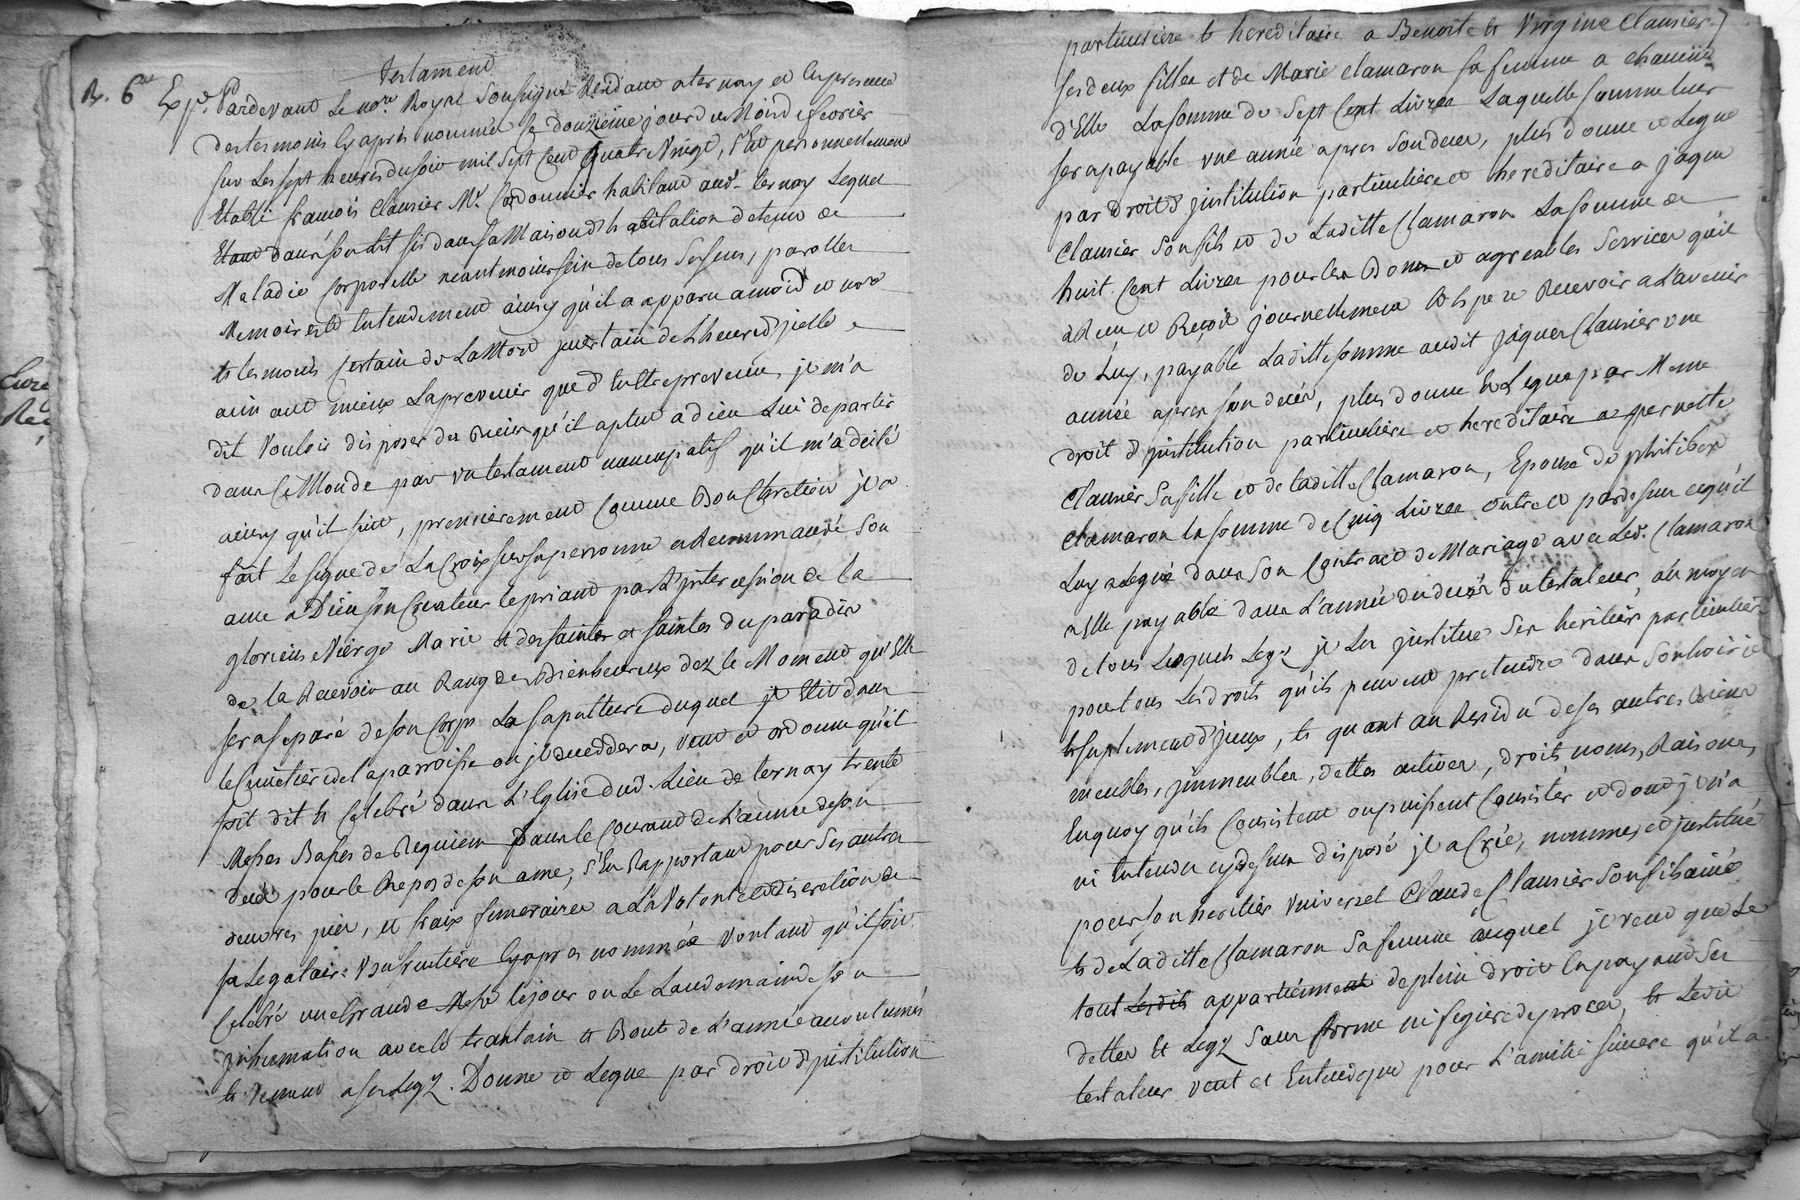 Testament
R. 6e Exp. Pardevant Le nore Royal Soussigné Residant a ternay et En presence
des tesmoins Cy apres nommés Le douzieme jour du Mois de fevrier
sur Les sept heures du soir mil sept Cent quatre Vingt, S'est personnellement
Etabli francois Clausier Me Cordonnier habitant audt ternay Lequel
Etant dans son lit sis dans sa Maison d'habitation detenu de
Maladie Corporelle neantmoins sein de tous ses sens, parolles
Memoire et Entendement ainsy qu'il a apparu a moid et nore
et tesmoins Certain de La Mort jncertain de L'heure d'jcelle e
aimant mieux La prevenir que d'En Etre prevenu, jl m'a
dit Vouloir disposer des Biens qu'il a plut a dieu Lui departir
dans Ce Monde par un testament nuncupatif qu'il m'a dicté
ainsy qu'il suit, premierement Comme Bon Chretien jl a
fait Le signe de La Croix sur sa personne a Recommandé Son
ame a Dieu Son Createur le priant par L'jntercession de la
glorieuse Vierge Marie et des saints et saintes du paradis
de la Recevoir au Rang des Bienheureux dez le Moment qu'Elle
sera separé de son Corps La sapulture duquel jl Elit dans
le Cimetiere de la parroisse ou jl deceddera, veut et ordonne qu'il
soit dit et Celebré dans L'Eglise dud. Lieu de ternay trente
Messes Basses de Requiem Dans le Courant de L'année de son
deces pour le Repos de son ame, s'En Rapportant pour Ses autres
oeuvres pies, et fraix funeraires a La Volonté et discretion de
sa Legataire Usufruitiere Cy apres nommée Voulant qu'il soit
Celebré une Grande Messe le jour ou Le Landemain de son
jnhumation avec le trantain et Bout de L'année accoutumés
et Venant a ses Legz. Donne et Legue par droit d'jnstitution
particuliere et hereditaire a Benoite et Virgine Clausier
ses deux filles et de Marie Clamaron sa femme a chacune
d'Elle La somme de Sept Cent Livres Laquelle somme leur
sera payable une année apres son deces, plus donne et Legue
par droit d'jnstitution particuliere et hereditaire a jaque
Clausier Son fils et de Laditte Clamaron La somme de
huit Cent Livres pour les Bons et agreables Services qu'il
a Recu et Reçoit journellement Et Espere Recevoir a L'avenir
de Luy, payable Laditte somme audit jaques Clausier une
année apres son deces, plus donne Et Legue par Meme
droit d'jnstitution particuliere et hereditaire a pernette
Clausier Sa fille et de laditte Clamaron, Epouse de philibert
Clamaron la somme de Cinq Livres outre et pardessus ce qu'il
Luy a Legué dans son Contract de Mariage avec Led. Clamaron
a Elle payable dans L'année du deces du testateur, au moyen
de tous Lesquels Legz jl Les jnstitue Ses heritiers particuliers
pour tous Les droits qu'ils peuvent pretendre dans Son hoirie
et suplement d'jceux, et quant au Residu de ses autres Biens
meubles, jmmeubles, dettes actives, droits noms, Raisons,
En quoy qu'ils Consistent ou puissent Consister et dont jl n'a
ni Entendu cy dessus disposé jl a Crée, nommé, et jnstitué
pour son heritier Universel Claude Clausier Son fils ainé
et de Laditte Clamaron Sa femme auquel jl veut que Le
tout Lesdits appartienne de plein droit En payant Ses
dettes Et Legz Sans forme ni figure de proces, et Ledit
testateur veut et Entend que pour L'amitié sincere qu'il a